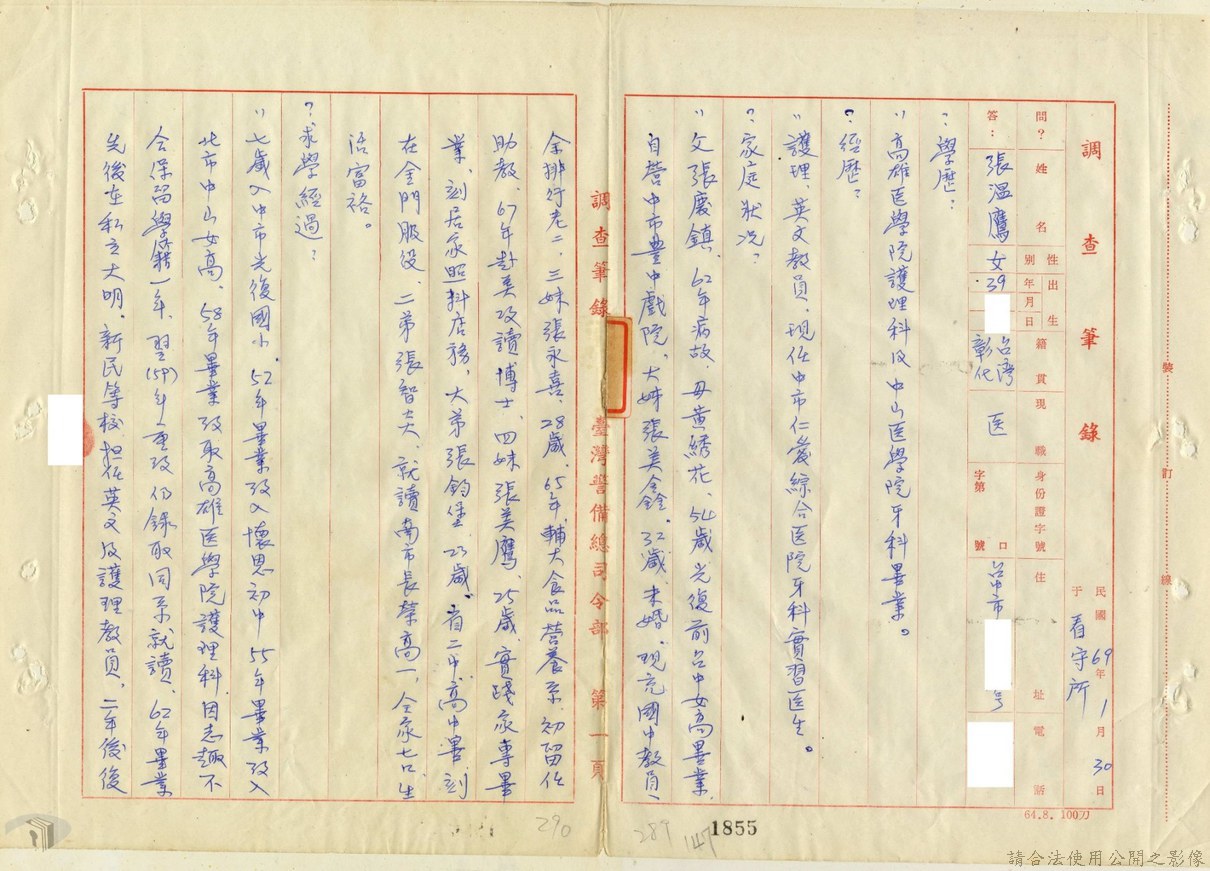 調查筆錄
民國69年1月30日
于看守所
問?姓名 性別 出生年月日 籍貫 現職 身份證字號 住址 電話
答:張溫鷹 女 39. 台灣彰化 医 字第 口號 台中市 号
?學歷:
〃高雄医學院護理科及中山医學院牙科畢業。
?經歷:
〃護理、英文教員,現任中市仁愛綜合医院牙科實習医生。
?家庭狀况:
〃父張慶鎮、62年病故,母黃綉花、54歲光復前台中女高畢業,
自營中市豊中戲院,大姊張美鑫、32歲、未婚、現充國中教員、
余排行老二,三妹張永喜、28歲、65年輔大食品營養系,初留任
助教,67年赴美攻讀博士,四妹張美鷹、25歲、實踐家專畢
業、刻居家照料店務,大弟張鈞堡、23歲、省二中高中畢、刻
在金門服役,二弟張智夫、就讀南市長榮高一,全家七口,生
活富裕。
?求學經過:
〃七歲入中市光復國小,52年畢業考入懷恩初中,55年畢業考入
北市中山女高,58年畢業考取高雄医學院護理科,因志趣不
合保留學籍一年,翌(59)年重考仍錄取同系就讀,62年畢業
先後在私立大明、新民等校担任英文及護理教員,二年後後
臺灣警備總司令部
調查筆錄
第一頁
裝 訂 線
64.8. 100刀
1855
289
147
290
請合法使用公開之影像